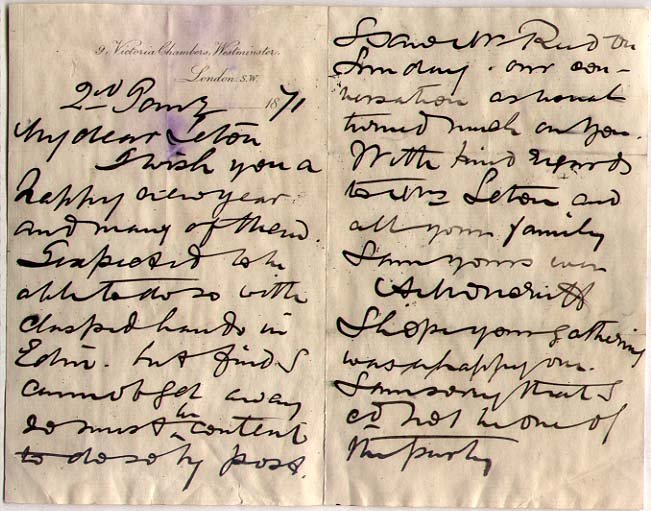 9, Victoria Chambers, Westminster.
London. S.W.
2nd Jany 1871
My dear Seton
I wish you a
happy new year
and many of them.
I expected to be
able to do so with
clasped hands in
Edinr. but find I
cannot get away
so must be content
to do so by post.
I saw Mr Reid on
Sunday. our con-
versation as usual
turned much on you.
With kind regards
to Mrs Seton and
all your family
I am yours ever
I hope your gathering
was a happy one.
I am sorry that I
cd not be one of
the party